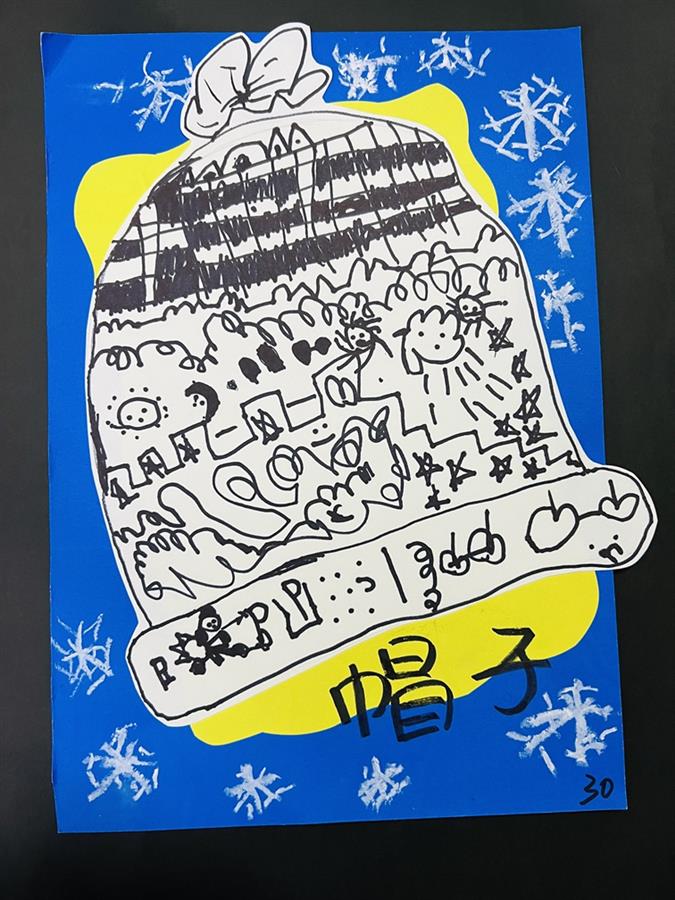 帽子
30